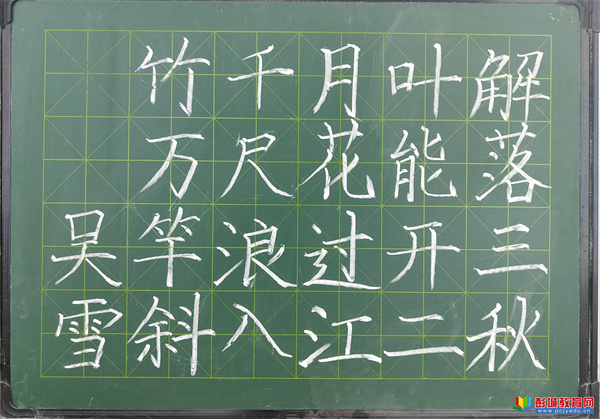 解落三秋
叶能开二
月花过江
千尺浪入
竹万竿斜
吴雪
彭城教育网
www.pcjyedu.cn